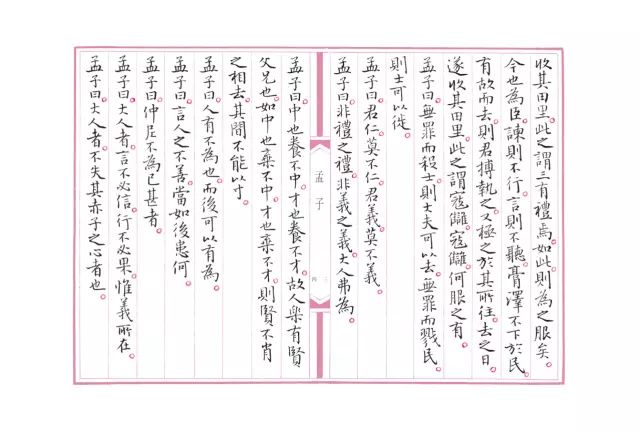 收其田里。此之謂三有禮焉。如此則為之服矣。
今也為臣。諫則不行。言則不聽。膏澤不下於民。
有故而去。則君搏執之。又極之於其所往。去之日。
遂收其田里。此之謂寇讎。寇讎何服之有。
孟子曰。無罪而殺士。則大夫可以去。無罪而戮民。
則士可以徙。
孟子曰。君仁莫不仁。君義莫不義。
孟子曰。非禮之禮。非義之義。大人弗為。
孟子
三
四
孟子曰。中也養不中。才也養不才。故人樂有賢
父兄也。如中也棄不中。才也棄不才。則賢不肖
之相去。其間不能以寸。
孟子曰。人有不為也。而後可以有為。
孟子曰。言人之不善。當如後患何。
孟子曰。仲尼不為已甚者。
孟子曰。大人者。言不必信。行不必果。惟義所在。
孟子曰。大人者。不失其赤子之心者也。